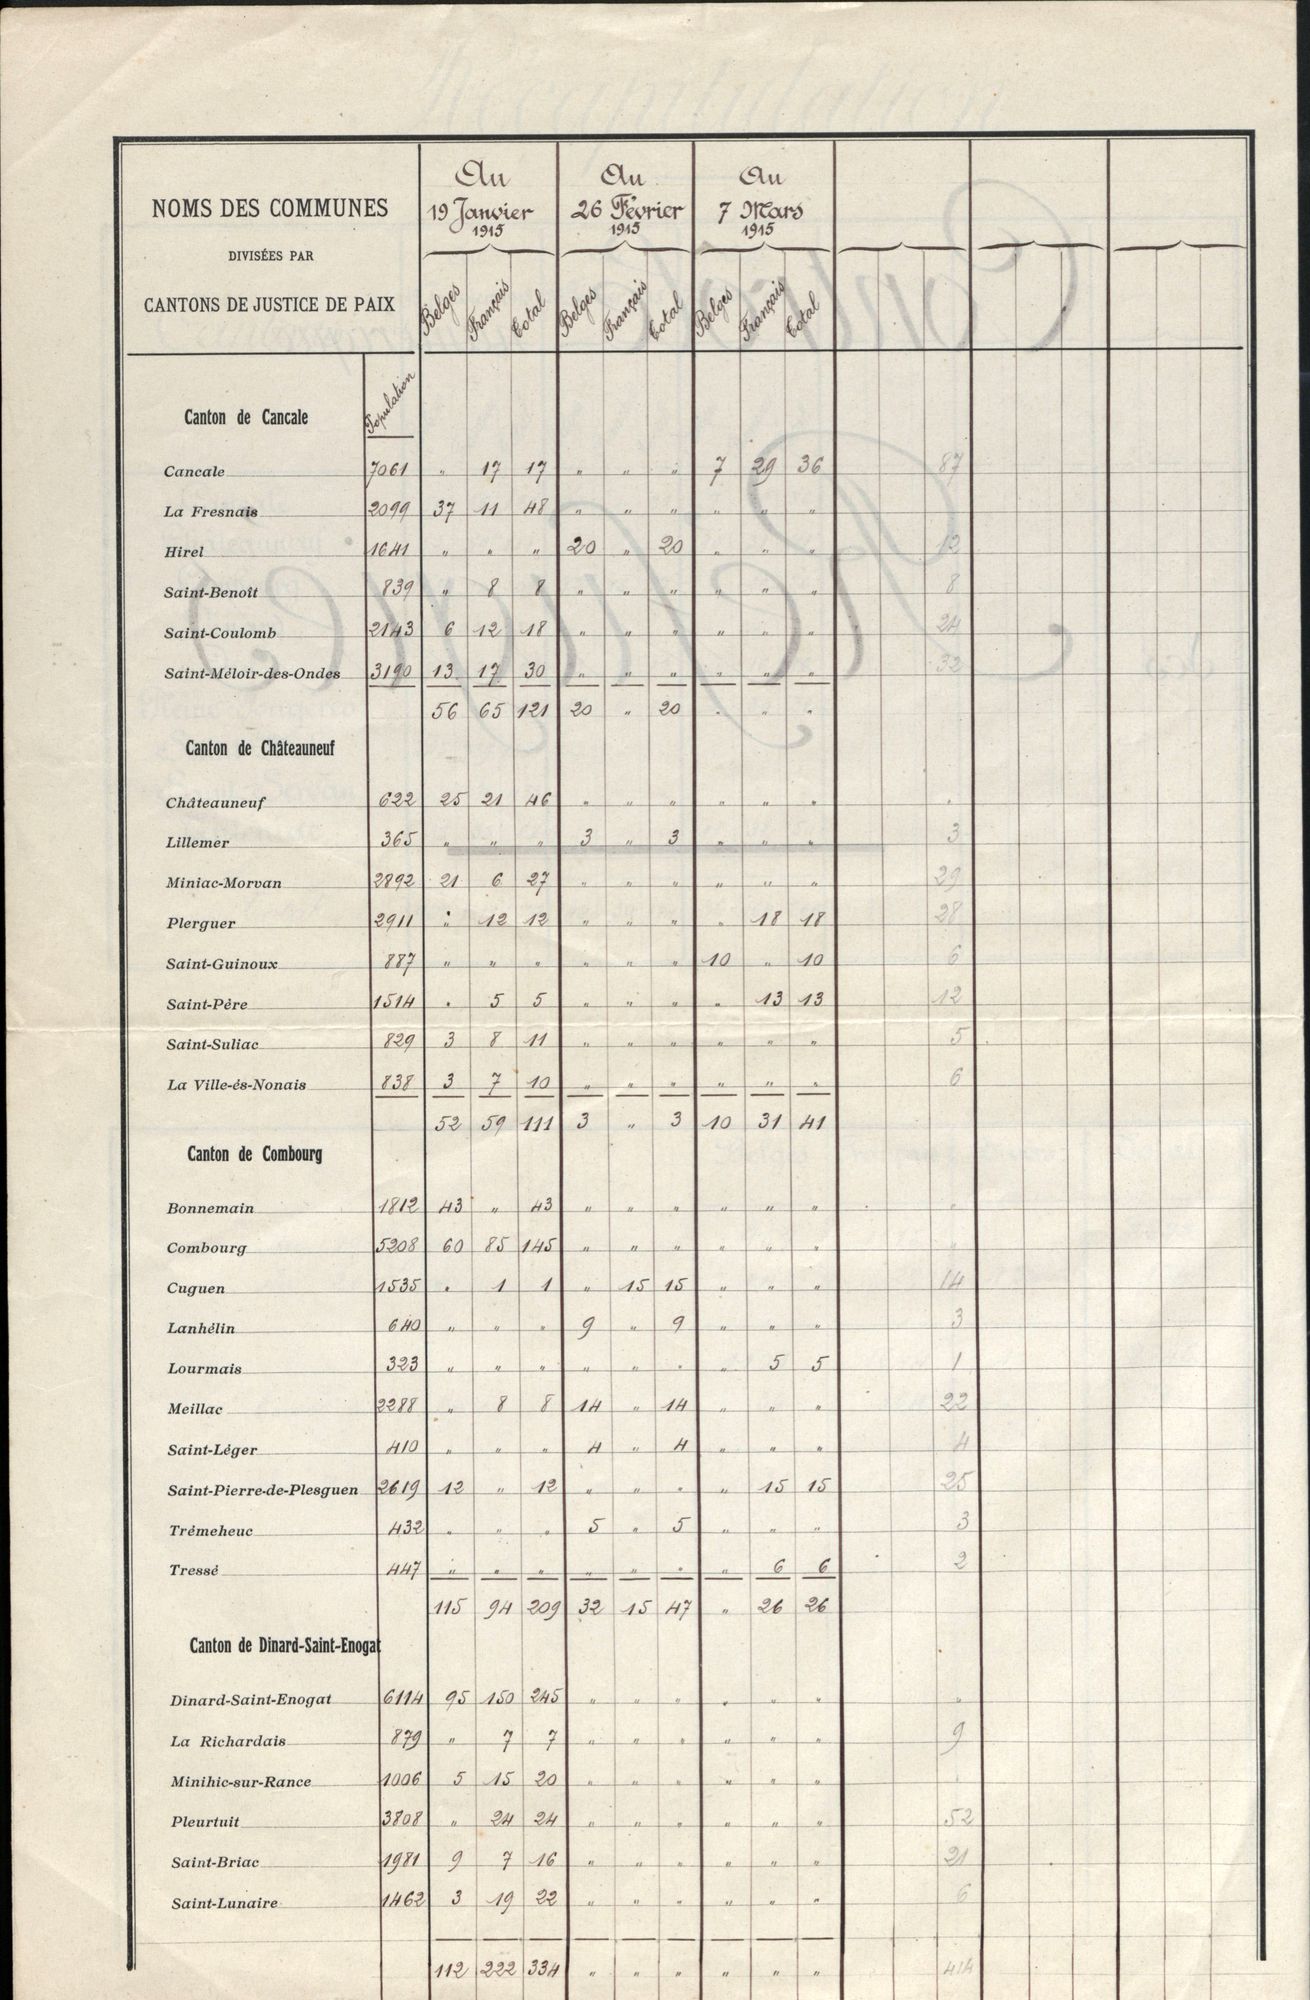 NOMS DES COMMUNES
DIVISÉES PAR
CANTONS DE JUSTICE DE PAIX
Au 19 Janvier 1915
Au 26 Février 1915
Au 7 Mars 1915
Belges Français Total Belges Français Total Belges Français Total
Population
Canton de Cancale
Cancale 7061 " 17 17 " " " 7 29 36 87
La Fresnais 2099 37 11 48 " " " " " "
Hirel 1641 " " " 20 " 20 " " " 12
Saint-Benoît 839 " 8 8 " " " " " " 8
Saint-Coulomb 2143 6 12 18 " " " " " " 24
Saint-Méloir-des-Ondes 3190 13 17 30 " " " " " " 32
56 65 121 20 " 20 " " "
Canton de Châteauneuf
Châteauneuf 622 25 21 46 " " " " " " "
Lillemer 365 " " " 3 " 3 " " " 3
Miniac-Morvan 2892 21 6 27 " " " " " " 29
Plerguer 2911 " 12 12 " " " " 18 18 28
Saint-Guinoux 887 " " " " " " 10 " 10 6
Saint-Père 1514 " 5 5 " " " " 13 13 12
Saint-Suliac 829 3 8 11 " " " " " " 5
La Ville-ès-Nonais 838 3 7 10 " " " " " " 6
52 59 111 3 " 3 10 31 41
Canton de Combourg
Bonnemain 1812 43 " 43 " " " " " " "
Combourg 5208 60 85 145 " " " " " " "
Cuguen 1535 " 1 1 " 15 15 " " " 14
Lanhélin 640 " " " 9 " 9 " " " 3
Lourmais 323 " " " " " " " 5 5 1
Meillac 2288 " 8 8 14 " 14 " " " 22
Saint-Léger 410 " " " 4 " 4 " " " 4
Saint-Pierre-de-Plesguen 2619 12 " 12 " " " " 15 15 25
Trémeheuc 432 " " " 5 " 5 " " " 3
Tressé 447 " " " " " " " 6 6 2
115 94 209 32 15 47 " 26 26
Canton de Dinard-Saint-Enogat
Dinard-Saint-Enogat 6114 95 150 245 " " " " " " "
La Richardais 879 " 7 7 " " " " " " 9
Minihic-sur-Rance 1006 5 15 20 " " " " " "
Pleurtuit 3808 " 24 24 " " " " " " 52
Saint-Briac 1981 9 7 16 " " " " " " 21
Saint-Lunaire 1462 3 19 22 " " " " " " 6
112 222 334 " " " " " " 414